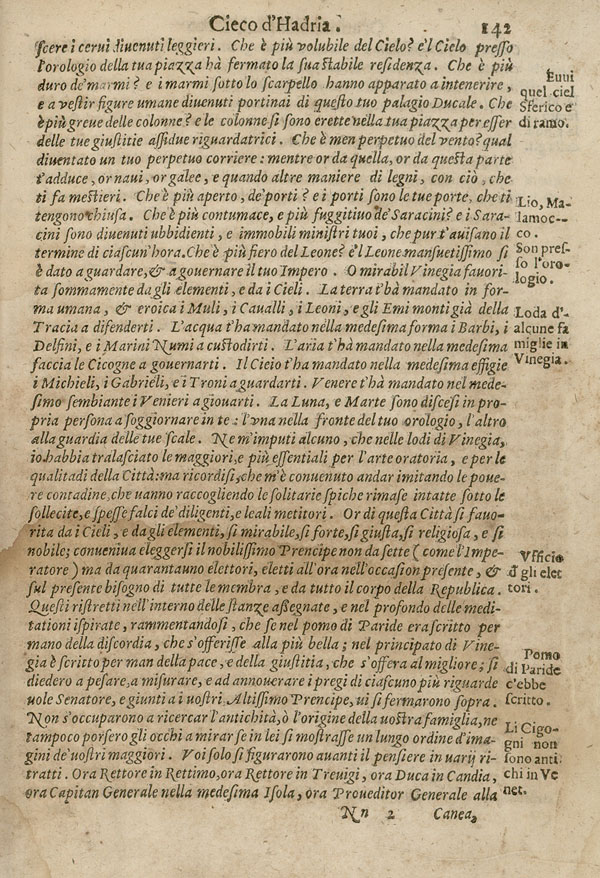 Cieco d'Hadria.
142
ſcere i cerui diuenuti leggieri. Che è più volubile del Cielo? e'l Cielo preſſo
l'orologio della tua piazza hà fermato la sua ſtabile reſidenza. Che è più
duro de' marmi? e i marmi ſotto lo ſcarpello hanno apparato a intenerire,
e a veſtir figure umane diuenuti portinai di queſto tuo palagio Ducale. Che
è più greue delle colonne? e le colonne ſi ſono erette nella tua piazza per eſſer
delle tue giuſtitie aſſidue riguardatrici. Che è men perpetuo del vento? qual
diuentato un tuo perpetuo corriere: mentre or da quella, or da queſta parte
t'adduce, or naui, or galee, e quando altre maniere di legni, con ciò, che
ti fa meſtieri. Che è più aperto, de' porti? e i porti ſono le tue porte, che ti
tengono chiuſa. Che è più contumace, e più fuggitiuo de' Saracini? e i Sara-
cini ſono diuenuti ubbidienti, e immobili miniſtri tuoi, che pur t'auiſano il
termine di ciaſcun'hora. Che è più fiero del Leone? e'l Leone manſuetiſſimo ſi
è dato a guardare, & a gouernare il tuo Impero. O mirabil Vinegia fauori-
ta ſommamente da gli elementi, e da i Cieli. La terra t'hà mandato in for-
ma umana, & eroica i Muli, i Caualli, i Leoni, e gli Emi monti già della
Tracia a difenderti. L'acqua t'ha mandato nella medeſima forma i Barbi, i
Delfini, e i Marini Numi a cuſtodirti. L'aria t'hà mandato nella medeſima
faccia le Cicogne a gouernarti. Il Cielo t'hà mandato nella medeſima effigie
i Michieli, i Gabrieli, e i Troni a guardarti. Venere t'hà mandato nel mede-
ſimo ſembiante i Venieri a giouarti. La Luna, e Marte ſono diſceſi in pro-
pria perſona a ſoggiornare in te: l'vna nella fronte del tuo orologio, l'altro
alla guardia delle tue ſcale. Ne m'imputi alcuno, che nelle lodi di Vinegia,
io habbia tralaſciato le maggiori, e più eſſentiali per l'arte oratoria, e per le
qualitadi della Città: ma ricordiſi, che m'è conuenuto andar imitando le poue-
re contadine, che uanno raccogliendo le ſolitarie ſpiche rimaſe intatte ſotto le
ſollecite, e ſpeſſe falci de' diligenti, e leali metitori. Or di queſta Città ſi fauo-
rita da i Cieli, e da gli elementi, ſi mirabile, ſi forte, ſi giuſta, ſi religioſa, e ſi
nobile; conueniua eleggerſi il nobiliſſimo Prencipe non da ſette (come l'Impe-
ratore) ma da quarantauno elettori, eletti all'ora nell'occaſion preſente, &
ſul preſente biſogno di tutte le membra, e da tutto il corpo della Republica.
Queſti riſtretti nell'interno delle ſtanze aſſegnate, e nel profondo delle medi-
tationi iſpirate, rammentandoſi, che ſe nel pomo di Paride era ſcritto per
mano della diſcordia, che s'offeriſſe alla più bella; nel principato di Vine-
gia è ſcritto per man della pace, e della giuſtitia, che s'offera al migliore; ſi
diedero a peſare, a miſurare, e ad annouerare i pregi di ciaſcuno più riguarde
uole Senatore, e giunti a i uoſtri Altiſſimo Prencipe, ui ſi fermarono ſopra.
Non s'occuparono a ricercar l'antichità, ò l'origine della uoſtra famiglia, ne
tampoco porſero gli occhi a mirar ſe in lei ſi moſtraſſe un lungo ordine d'ima-
gini de' uoſtri maggiori. Voi ſolo ſi figurarono auanti il penſiere in uarij ri-
tratti. Ora Rettore in Rettimo, ora Rettore in Treuigi, ora Duca in Candia,
ora Capitan Generale nella medeſima Iſola, ora Proueditor Generale alla
Nn 2 Canea,
Euui
quel ciel
Sferico e
di ramo.
Lio, Ma-
lamoc--
co.
Son preſ-
ſo l'oro-
logio.
Loda d'-
alcune fa
miglie in
Vinegia.
Vfficio
d gli elet
tori.
Pomo
di Paride
c'ebbe
ſcritto.
Li Cigo-
gni non
ſono anti
chi in Ve
net.